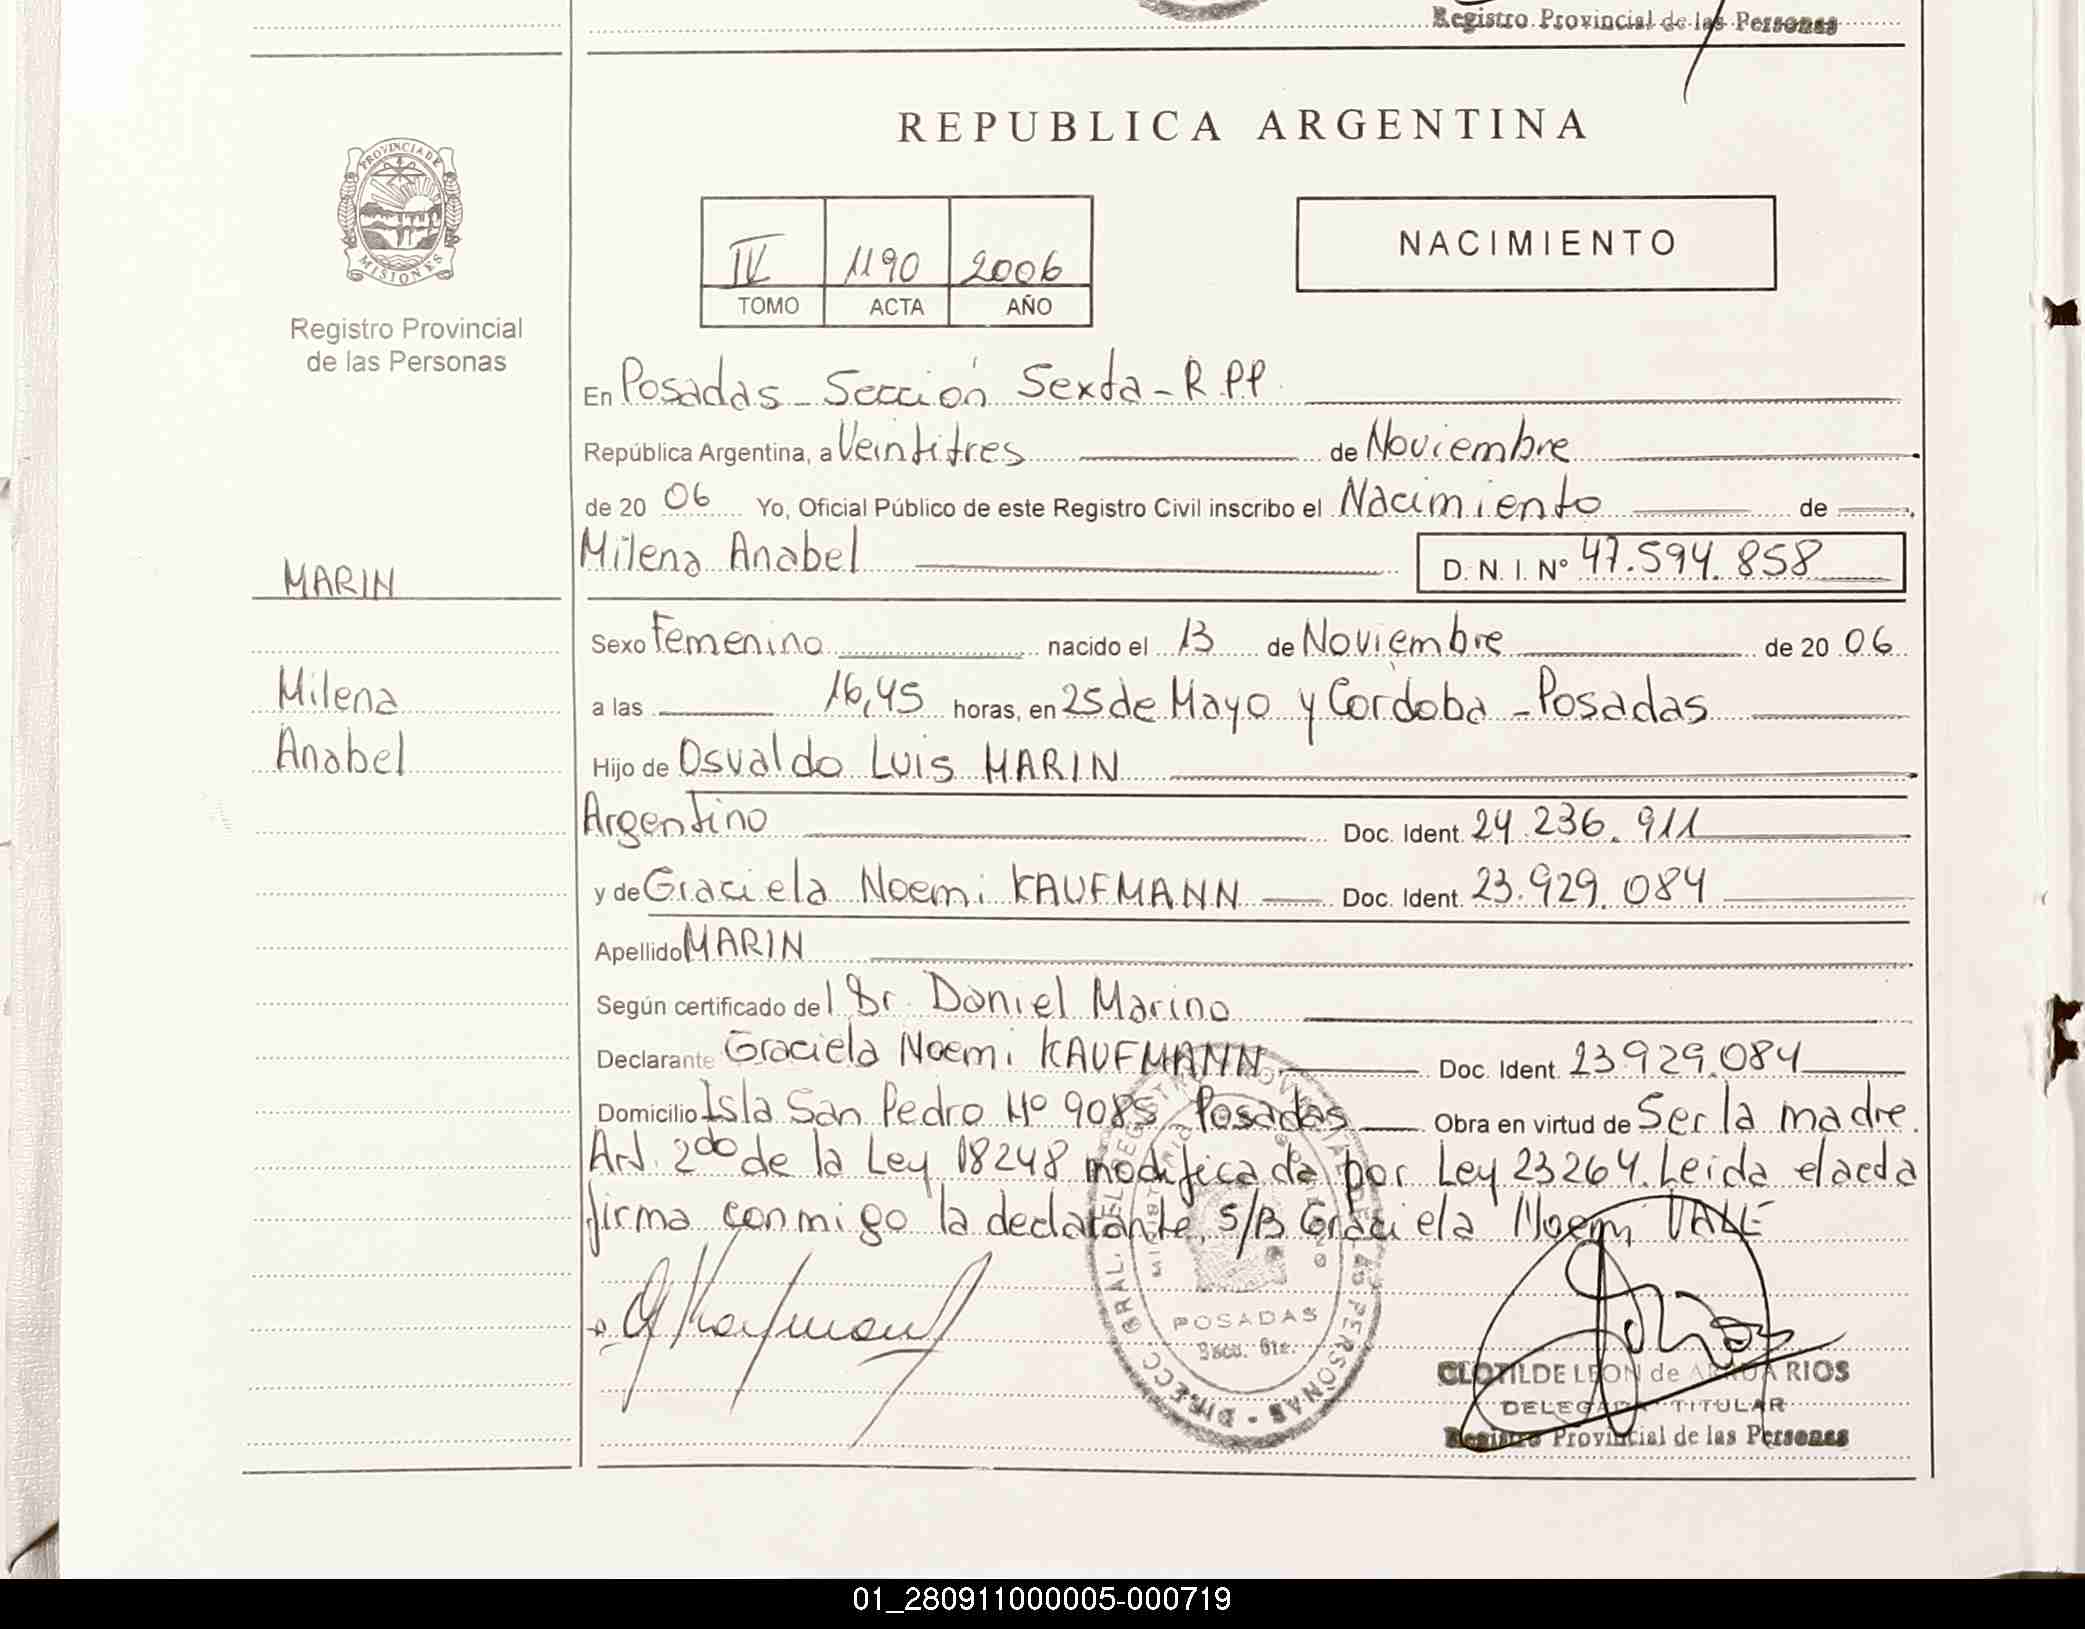 Registro Provincial de las Personas
REPUBLICA ARGENTINA
PROVINCIA DE
MISIONES
Registro Provincial
de las Personas
IV 1190 2006
TOMO ACTA AÑO
NACIMIENTO
En Posadas - Sección Sexta - R.P.P
República Argentina, a Veintitres de Noviembre
de 20 06 Yo, Oficial Público de este Registro Civil inscribo el Nacimiento de
Milena Anabel D. N. I. Nº 47.594.858
MARIN
Milena
Anabel
Sexo Femenino nacido el 13 de Noviembre de 20 06
a las 16,45 horas, en 25 de Mayo y Cordoba - Posadas
Hijo de Osvaldo Luis MARIN
Argentino Doc. Ident. 24.236.911
y de Graciela Noemi KAUFMANN Doc. Ident. 23.929.084
Apellido MARIN
Según certificado del Dr. Daniel Marino
Declarante Graciela Noemi KAUFMANN Doc. Ident. 23.929.084
Domicilio Isla San Pedro Nº 9085 Posadas Obra en virtud de Ser la madre.
Art. 2do de la Ley 18248 modificada por Ley 23264. Leida el acta
firma conmigo la declarante, S/B Graciela Noemi VALE
POSADAS
Secc. 6ta.
CLOTILDE LEON de RIOS
DELEGADA TITULAR
Registro Provincial de las Personas
01_280911000005-000719